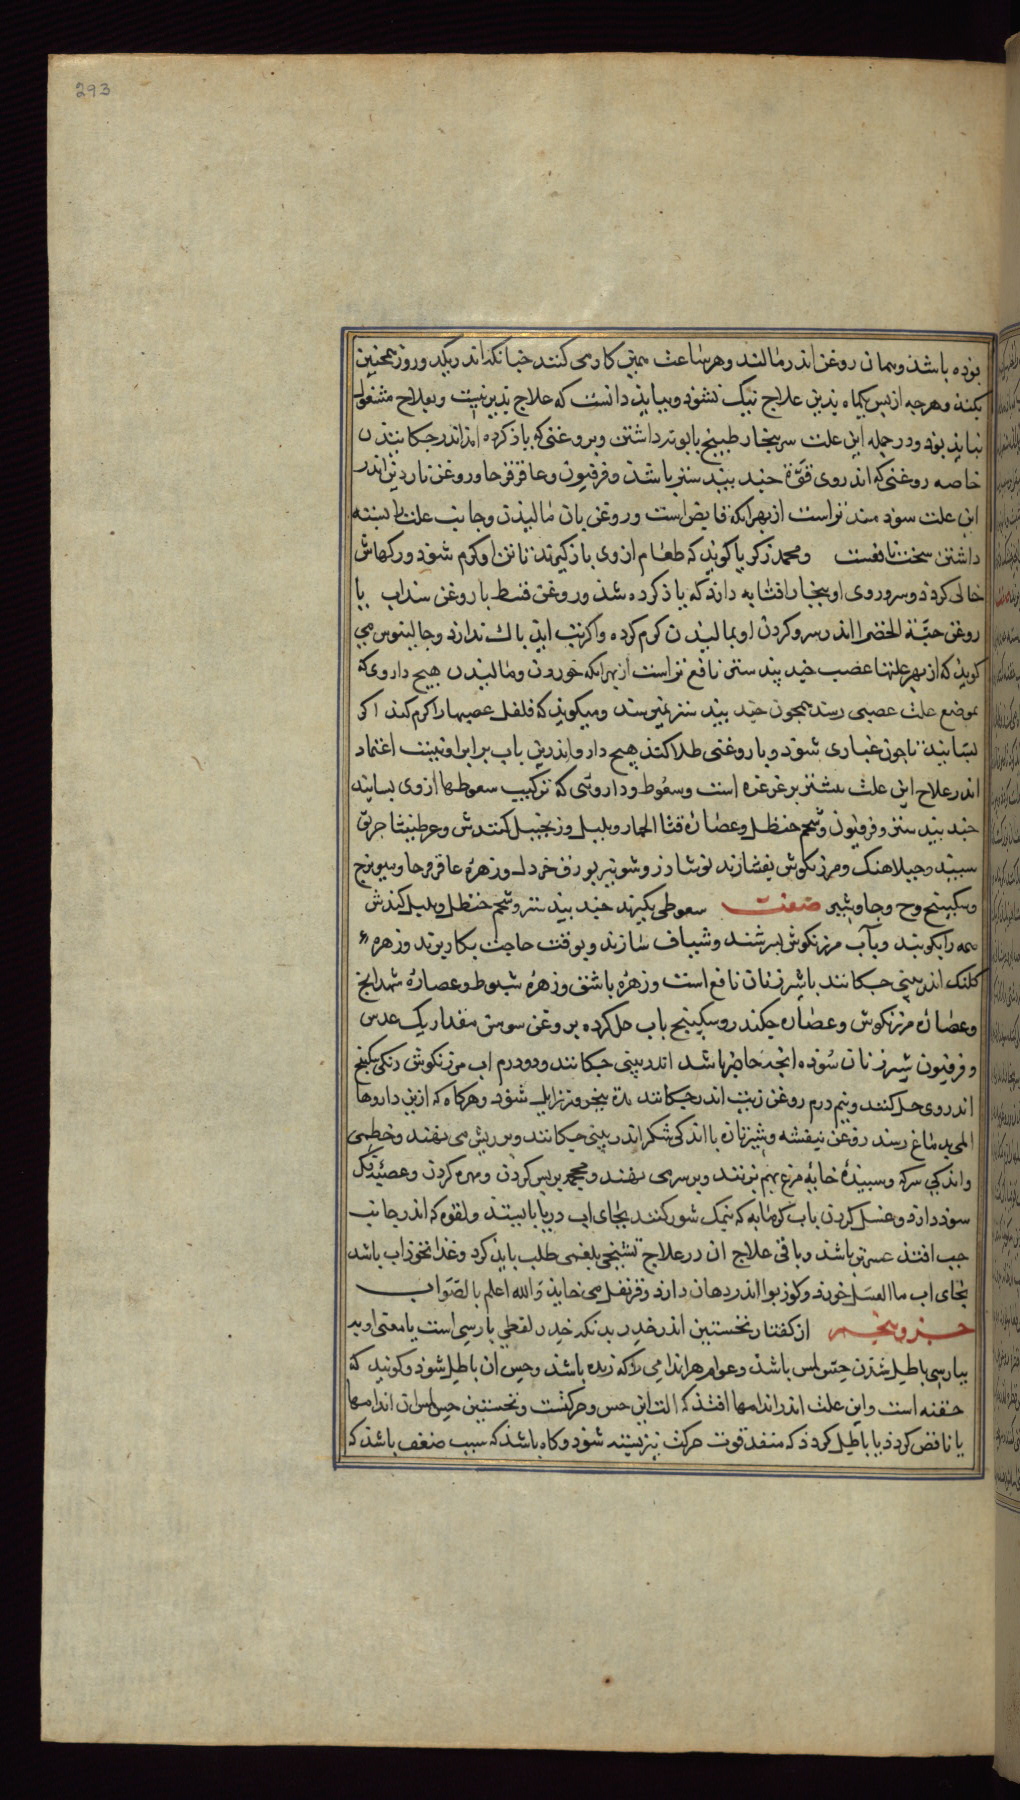 293
بوده باشد و همان روغن اندر مالند و هر ساعت همین کار می کنند چنانکه اندر یکد و روز همچنین
بکند و هرچه از پس یکماه بدین علاج نیک نشود و بباید دانست که علاج پذیر نیست و بعلاج مشغول
نباید بود و در جمله این علت سر ببخار طبیخ بابونه داشتن و بروغنی که یاذ کرده اند اندر چکانیدن
خاصه روغنی که اندر وی قوّة جند بیدستر باشد و فرفیون و عاقرقرحا و روغن ناردین اندر
این علت سودمندتر است از بهر آنکه قابض است و روغن بان مالیدن و جانب علت را بسته
داشتن سخت نافعست و محمد زکریا کوید که طعام از وی باز کیرند تا تن او کرم شود و رکهاش
خالی کردد و سر و روی او ببخار افتابه دارند که یاذ کرده شد و روغن قسط با روغن سداب یا
روغن حبّة الخضرا اندر سر و کردن او بمالیدن کرم کرده و اکر تب آید باک ندارد و جالینوس می
کوید که از بهر علتها عصب جند بیدستر نافع تر است از بهر آنکه خوردن و مالیدن هیچ داروی که
بموضع علت عصبی رسد همچون جند بیدستر نمی رسد و میکوید که فلفل عصبها را کرم کند اکر
بسایند تا چون غباری شود و با روغنی طلا کنند هیچ دارو اندرین باب برابر او نیست اعتماد
اندر علاج این علت بیشتر بر غرغره است و سعوط و داروئی که ترکیب سعوطها از وی بسایند
جند بیدستر و فرفیون و شحم حنظل و عصاره قثا الحمار و پلپل و زنجبیل کندش و عرطنیثا خربق
سپید و جبلاهنک و مرزنکوش بفشارند نوشادر و شونیز بورق خردل و زهره عاقرقرحا و میویزج
و سکبینج وج و جاوشیر صفت سعوطی بکیرند جند بیدستر و شحم حنظل و پلپل کندش
همه را بکوبند و بآب مرزنکوش بسرشند و شیاف سازند و بوقت حاجت بکار برند و زهره
کلنک اندر بینی چکانند با شیر زنان نافع است و زهره باشق و زهره شبوط و عصاره شهدانج
و عصاره مرزنکوش و عصاره چکندر و سکبینج باب حل کرده بروغن سوسن مقدار یک عدس
و فرفیون بشیر زنان سوده انجه حاضر باشد اندر بینی چکانند و دو درم اب مرزنکوش دنکی سکبینج
اندر وی حل کنند و نیم درم روغن زیت اندر چکانند مدة پنجروز زایل شود و هرکاه که ازین داروها
المی بدماغ رسد روغن بنفشه و شیر تازه با اندکی شکر اندر بینی چکانند و بر ریش می نهند و خطمی
و اندکی سرکه و سپیده خایه مرغ بهم بزنند و بر سر می نهند و محجمه بر پس کردن و مهره کردن و
سود دارد و غسل کردن باب کرمابه که نمک شور کنند بجای اب دریا بایستد و لقوه که اندر جانب
چپ افتذ عسرتر باشد و باقی علاج ان در علاج تشنج بلغمی طلب باید کرد و غذا نخودآب باشد
بجای اب ما العسل خورد و کوزبوا اندر دهان دارد و قرنفل می خاید و الله اعلم بالصواب
جزو پنجم از کفتار نخستین اندر خدر بدانکه خدر لفظی پارسی است یا معنی او
بپارسی باطل شدن حس لمس باشد و عوام هر اندامی را که زده باشد و حس ان باطل شود کویند که
خفته است و این علت اندر اندامها افتد که الت این حس و حرکتست و نخستین حس لمس ان اندامها
یا ناقص کردد یا باطل کردد که منفذ قوت حرکت نیز بسته شود و کاه باشد که سبب ضعف باشد که